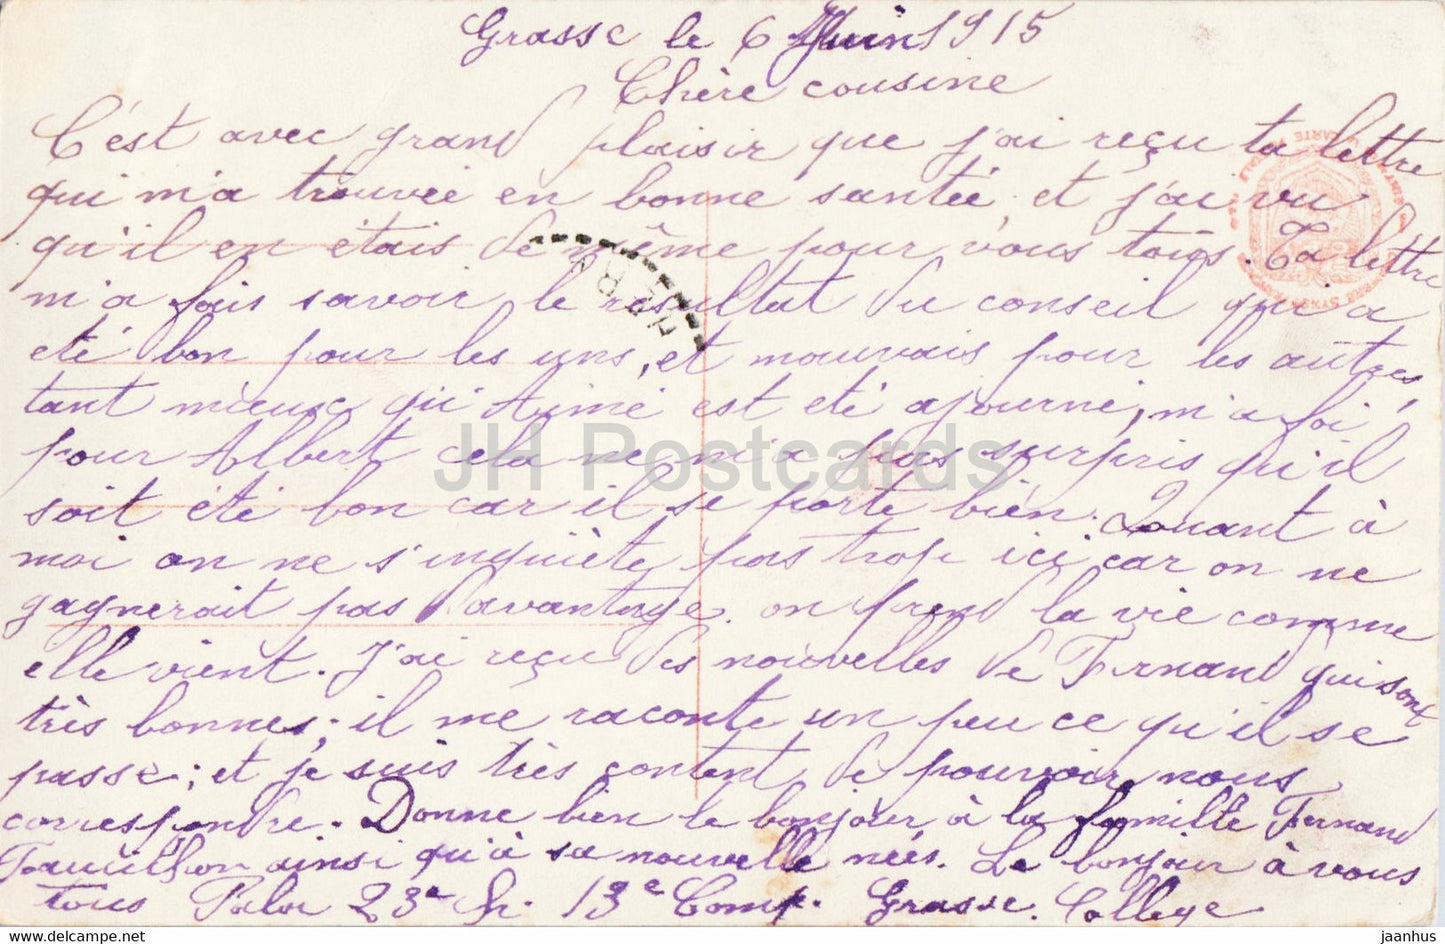 Grasse le 6 Juin 1915
Chère cousine
C'est avec grand plaisir que j'ai reçu ta lettre
qui m'a trouvée en bonne santée, et j'ai vu
qu'il en étais de même pour vous tous. Ta lettre
m'a fais savoir le résultat du conseil qui a
eté bon pour les uns, et mauvais pour les autres,
tant mieux qu'Aimé est eté ajourné, m'a foi
pour Albert cela ne m'a pas surpris qu'il
soit été bon car il se porte bien. Quant à
moi on ne s'inquiète pas trop ici car on ne
gagnerait pas davantage. on prend la vie comme
elle vient. J'ai reçu des nouvelles de Fernand qui sont
très bonnes; il me raconte un peu ce qu'il se
passe; et je suis très content de pouvoir nous
correspondre. Donne bien le bonjour à la famille Fernand
ainsi qu'à sa nouvelle neés. Le bonjour à vous
tous 23e 13e Comp. Grasse. College
JH Postcards
jaanhus @ delcampe.net